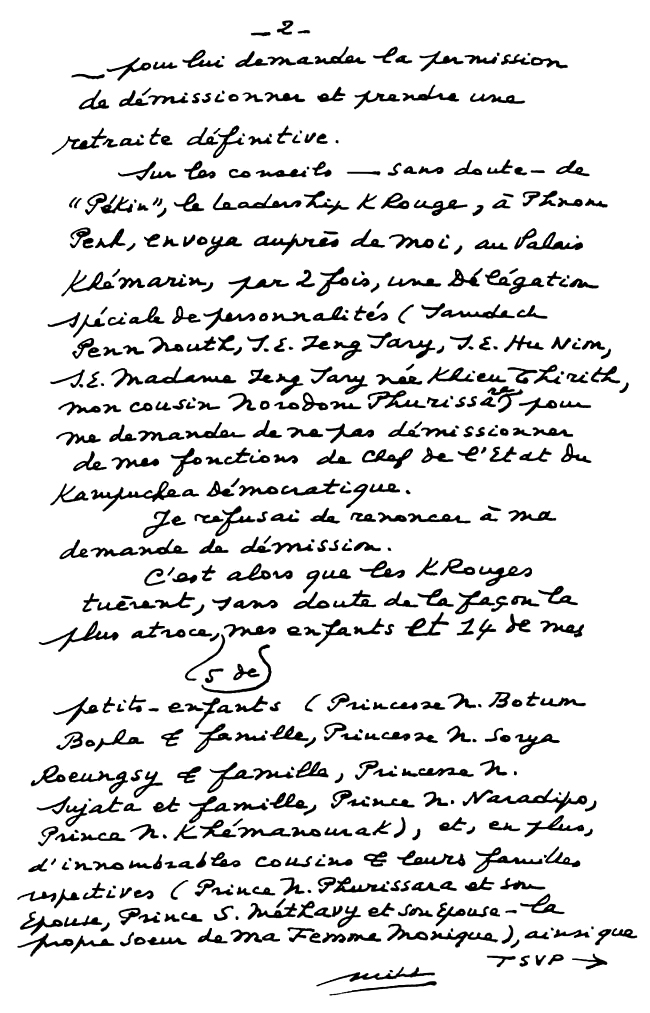 _ 2 _
_ pour lui demander la permission
de démissionner et prendre une
retraite définitive.
Sur les conseils — sans doute — de
"Pékin", le leadership K Rouge, à Phnom
Penh, envoya auprès de moi, au Palais
Khémarin, par 2 fois, une Délégation
spéciale de personnalités (Samdech
Penn Nouth, S.E. Ieng Sary, S.E. Hu Nim,
S.E. Madame Ieng Sary née Khieu Thirith,
mon cousin Norodom Phurissara) pour
me demander de ne pas démissionner
de mes fonctions de Chef de l'Etat du
Kampuchea Démocratique.
Je refusai de renoncer à ma
demande de démission.
C'est alors que les K Rouges
tuèrent, sans doute de la façon la
plus atroce, mes enfants et 14 de mes
(5 de)
petits-enfants (Princesse N. Botum
Bopha & famille, Princesse N. Sorya
Roeungsy & famille, Princesse N.
Sujata et famille, Prince N. Naradipo,
Prince N. Khémanourak), et, en plus,
d'innombrables cousins & leurs familles
respectives (Prince N. Phurissara et son
Epouse, Prince S. Méthavy et son Epouse - la
propre soeur de ma Femme Monique), ainsi que
TSVP →